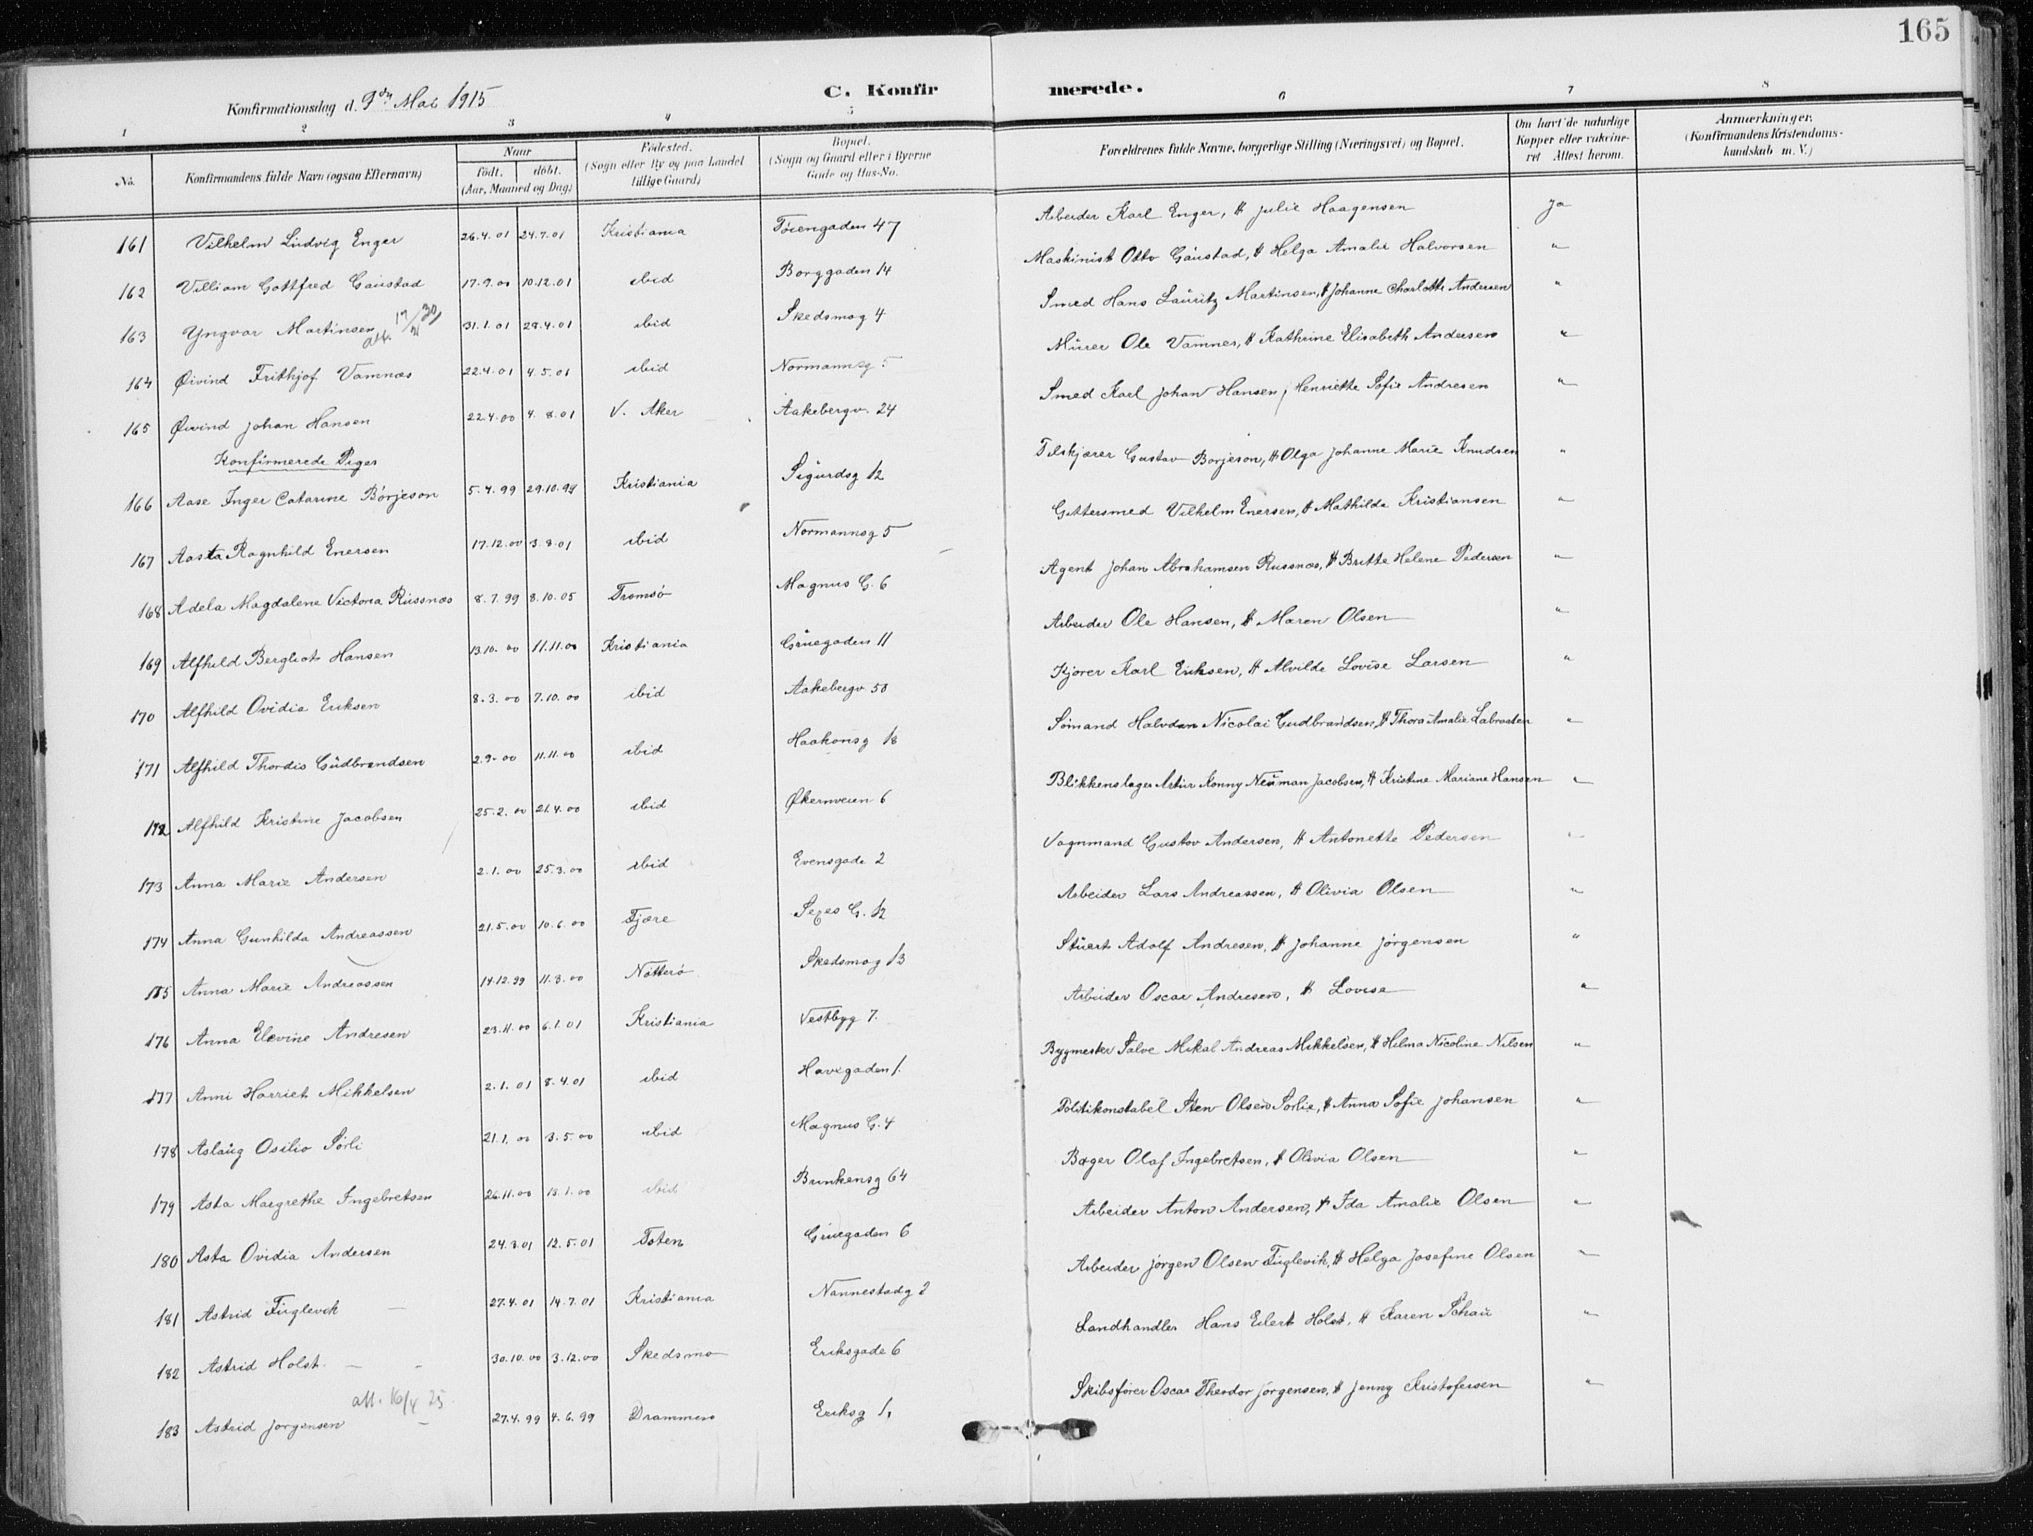 165
Konfirmationsdag d. 9de Mai 1915
C. Konfirmerede.
1 2 3 4 5 6 7 8
No. | Konfirmandens fulde Navn (ogsaa Efternavn) | Naar født. døbt. (Aar, Maaned og Dag) | Fødested. (Sogn eller By og paa Landet tillige Gaard) | Bopæl. (Sogn og Gaard eller i Byerne Gade og Hus-No. | Forældrenes fulde Navne, borgerlige Stilling (Næringsvei) og Bopæl. | Om havt de naturlige Kopper eller vakcineret Attest herom. | Anmærkninger. (Konfirmandens Kristendomskundskab m. V.)
161 Vilhelm Ludvig Enger 26.4.01 24.7.01 Kristiania Tøiengaden 47 Arbeider Karl Enger, & Julie Haagensen Ja
162 Villiam Gottfred Gaustad 17.9.00 10.12.01 ibid Borggaden 14 Maskinist Otto Gaustad, & Helga Amalie Halvorsen "
163 Yngvar Martinsen att. 31.1.01 28.4.01 ibid Skedsmog 4 Smed Hans Lauritz Martinsen, & Johanne Charlotte Andersen "
164 Øivind Frithjof Vamnæs 22.4.01 4.5.01 ibid Normannsg 5 Murer Ole Vamnes, & Kathrine Elisabeth Andersen "
165 Øivind Johan Hansen 22.4.00 4.8.01 V. Aker Aakebergv. 24 Smed Karl Johan Hansen, Henriette Sofie Andresen "
Konfirmerede Piger
166 Aase Inger Catarine Børjeson 5.4.99 29.10.99 Kristiania Sigurdsg 12 Tilskjærer Gustav Borjeson, & Olga Johanne Marie Knudsen "
167 Aasta Ragnhild Enersen 17.12.00 3.8.01 ibid Normannsg 5 Gittersmed Vilhelm Enersen, & Mathilde Kristiansen "
168 Adela Magdalene Victoria Russnæs 8.7.99 8.10.05 Tromsø Magnus G. 6 Agent Johan Abrahamsen Russnæs, & Britte Helene Pedersen "
169 Alfhild Bergliot Hansen 13.10.00 11.11.00 Kristiania Gruegaden 11 Arbeider Ole Hansen, & Maren Olsen "
170 Alfhild Ovidia Eriksen 8.3.00 7.10.00 ibid Aakebergv 50 Kjører Karl Eriksen, & Alvilde Lovise Larsen "
171 Alfhild Thordis Gudbrandsen 2.9.00 11.11.00 ibid Haakonsg 18 Sømand Halvdan Nicolai Gudbrandsen, & Thora Amalie Labraaten "
172 Alfhild Kristine Jacobsen 25.2.00 21.4.00 ibid Økernveien 6 Blikkenslager Artur Konny Neuman Jacobsen, & Kristine Mariane Hansen "
173 Anna Marie Andersen 2.1.00 25.3.00 ibid Evensgade 2 Vognmand Gustav Andersen, & Antonette Pedersen "
174 Anna Gunhilda Andreassen 21.5.00 10.6.00 Fjære Sexes G. 12 Arbeider Lars Andreassen, & Olivia Olsen "
175 Anna Marie Andreassen 14.12.99 11.3.00 Nøtterø Skedsmog 13 Stuert Adolf Andresen, & Johanne Jørgensen "
176 Anna Elevine Andresen 23.11.00 6.1.01 Kristiania Vestbyg 7. Arbeider Oscar Andresen, & Lovise "
177 Anni Harriet Mikkelsen 2.1.01 8.4.01 ibid Havegaden 1. Bygmester Salve Mikal Andreas Mikkelsen, & Hilma Nicoline Nilsen "
178 Aslaug Osilio Sørli 21.1.00 3.5.00 ibid Magnus G. 4 Politikonstabel Sten Olsen Sørlie, & Anna Sofie Johansen "
179 Asta Margrethe Ingebretsen 26.11.00 13.1.00 ibid Brinkensg 64 Bager Olaf Ingebretsen, & Olivia Olsen "
180 Asta Ovidia Andersen 24.3.01 12.5.01 Toten Gruegaden 6 Arbeider Anton Andersen, & Ida Amalie Olsen "
181 Astrid Fuglevik 27.4.01 14.7.01 Kristiania Nannestadg 2 Arbeider Jørgen Olsen Fuglevik, & Helga Josefine Olsen "
182 Astrid Holst 30.10.00 3.12.00 Skedsmo Eriksgade 6 Landhandler Hans Eilert Holst, & Karen Schau "
att. 16/4 25.
183 Astrid Jørgensen 27.4.99 4.6.99 Drammen Eriksg 1, Skibsfører Oscar Theodor Jørgensen, & Jenny Kristofersen "